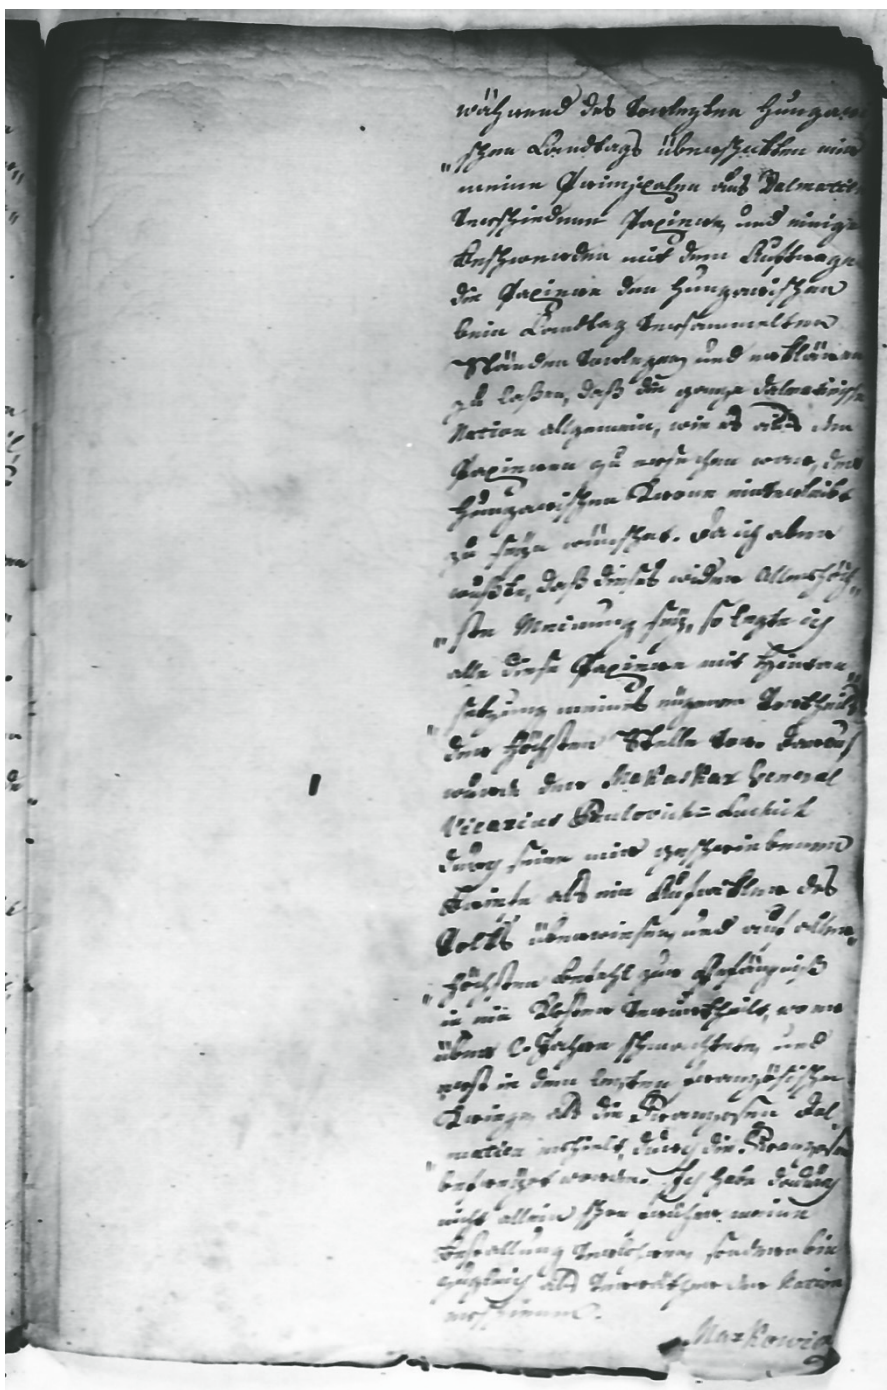 während des vorlezten Hungari
„schen Landtags überschickten mir
meine Principalen aus Dalmatien
verschiedene Papiere, und einige
Beschwerden mit dem Auftrage
die Papiere den Hungarischen
beim Landtag versammelten
Ständen vorlegen, und erklären
zu laßen, daß die ganze dalmatinische
Nation allgemein, wie es aus den
Papieren zu ersehen war, der
Hungarischen Krone einverleibt
zu seyn wünschet. Da ich aber
wußte, daß dieses wider Allerhöch„
„ste Meinung sey, so legte ich
alle diese Papiere mit Hintan„
„setzung meines eigenen Vortheils
der höchsten Stelle vor. Darauf
wurde der Makaskar General
Vicarius Paulovich=Luchich
durch seine mir geschriebenen
Briefe als ein Aufwikler des
Volks überwiesen, und auf aller„
„höchsten Befehl zur Gefängniß
in ein Kloster verurtheilt, wo er
über Jahre schmachtete, und
erst in dem lezten französischen
Kriege, als die Franzosen Dal
matien erhielt, durch die Franzosen
„befreyet worden. Ich habe dadurch
nicht allein schon meine
Bestallung verlohren, sondern bin
zugleich als Verräther der Nation
erschienen.
Markowich